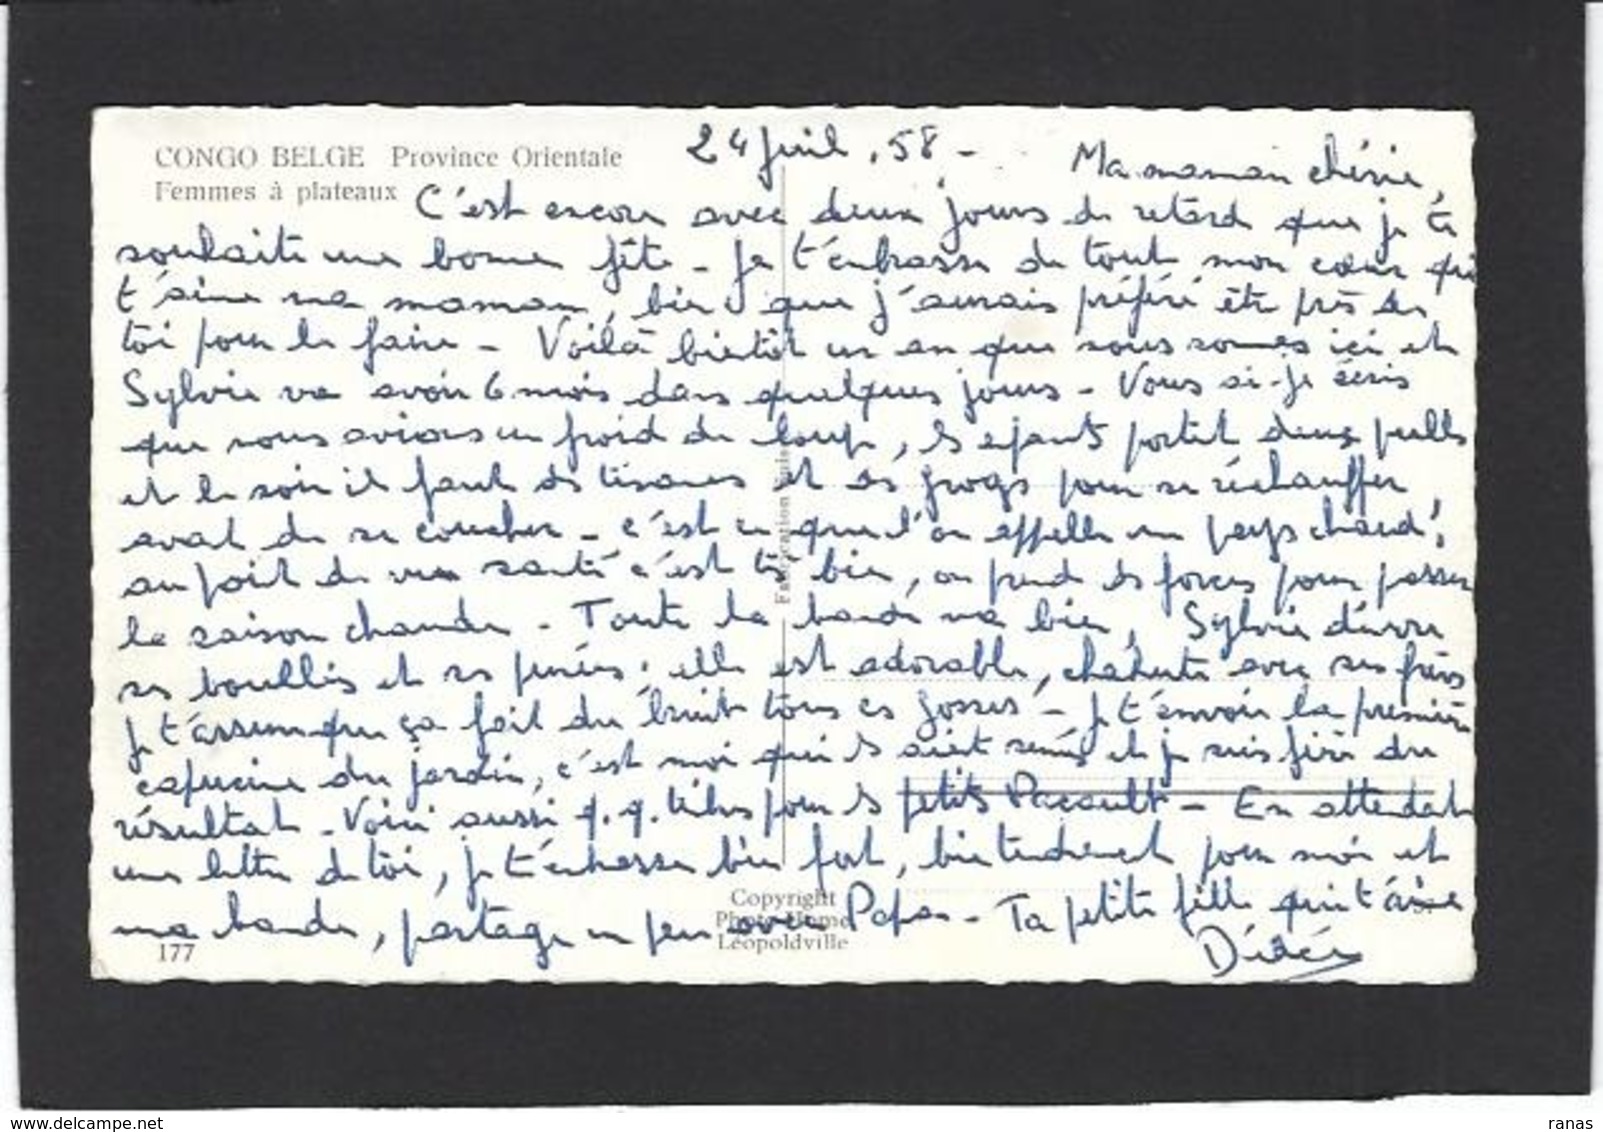 CONGO BELGE Province Orientale
Femmes à plateaux
24 Juil. 58 -
Ma maman chérie,
C'est encore avec deux jours de retard que je te
souhaite une bonne fête - Je t'embrasse de tout mon cœur qui
t'aime ma maman, bien que j'aurais préféré être près de
toi pour le faire - Voilà bientôt un an que nous sommes ici et
Sylvie va avoir 6 mois dans quelques jours - Vous ai-je écris
que nous avions un froid de loup, les enfants portent deux pulls
et le soir il faut des tisanes et des grogs pour se réchauffer
avant de se coucher - c'est ce que l'on appelle un pays chaud!
au point de vue santé c'est très bien, on prend des forces pour passer
la saison chaude - Toute la bande va bien, Sylvie dévore
ses bouillies et ses purées; elle est adorable, chahute avec ses frères
Je t'assure que ça fait du bruit tous ces gosses - Je t'envoie la première
capucine du jardin, c'est moi qui les avait semés et je suis fière du
résultat - Voici aussi q.q. timbres pour les petits Pacault - En attendant
une lettre de toi, je t'embrasse bien fort, bien tendrement pour moi et
ma bande, partage un peu avec Papa - Ta petite fille qui t'aime
Copyright
Photo Home
Léopoldville
177
delcampe.net
ranas